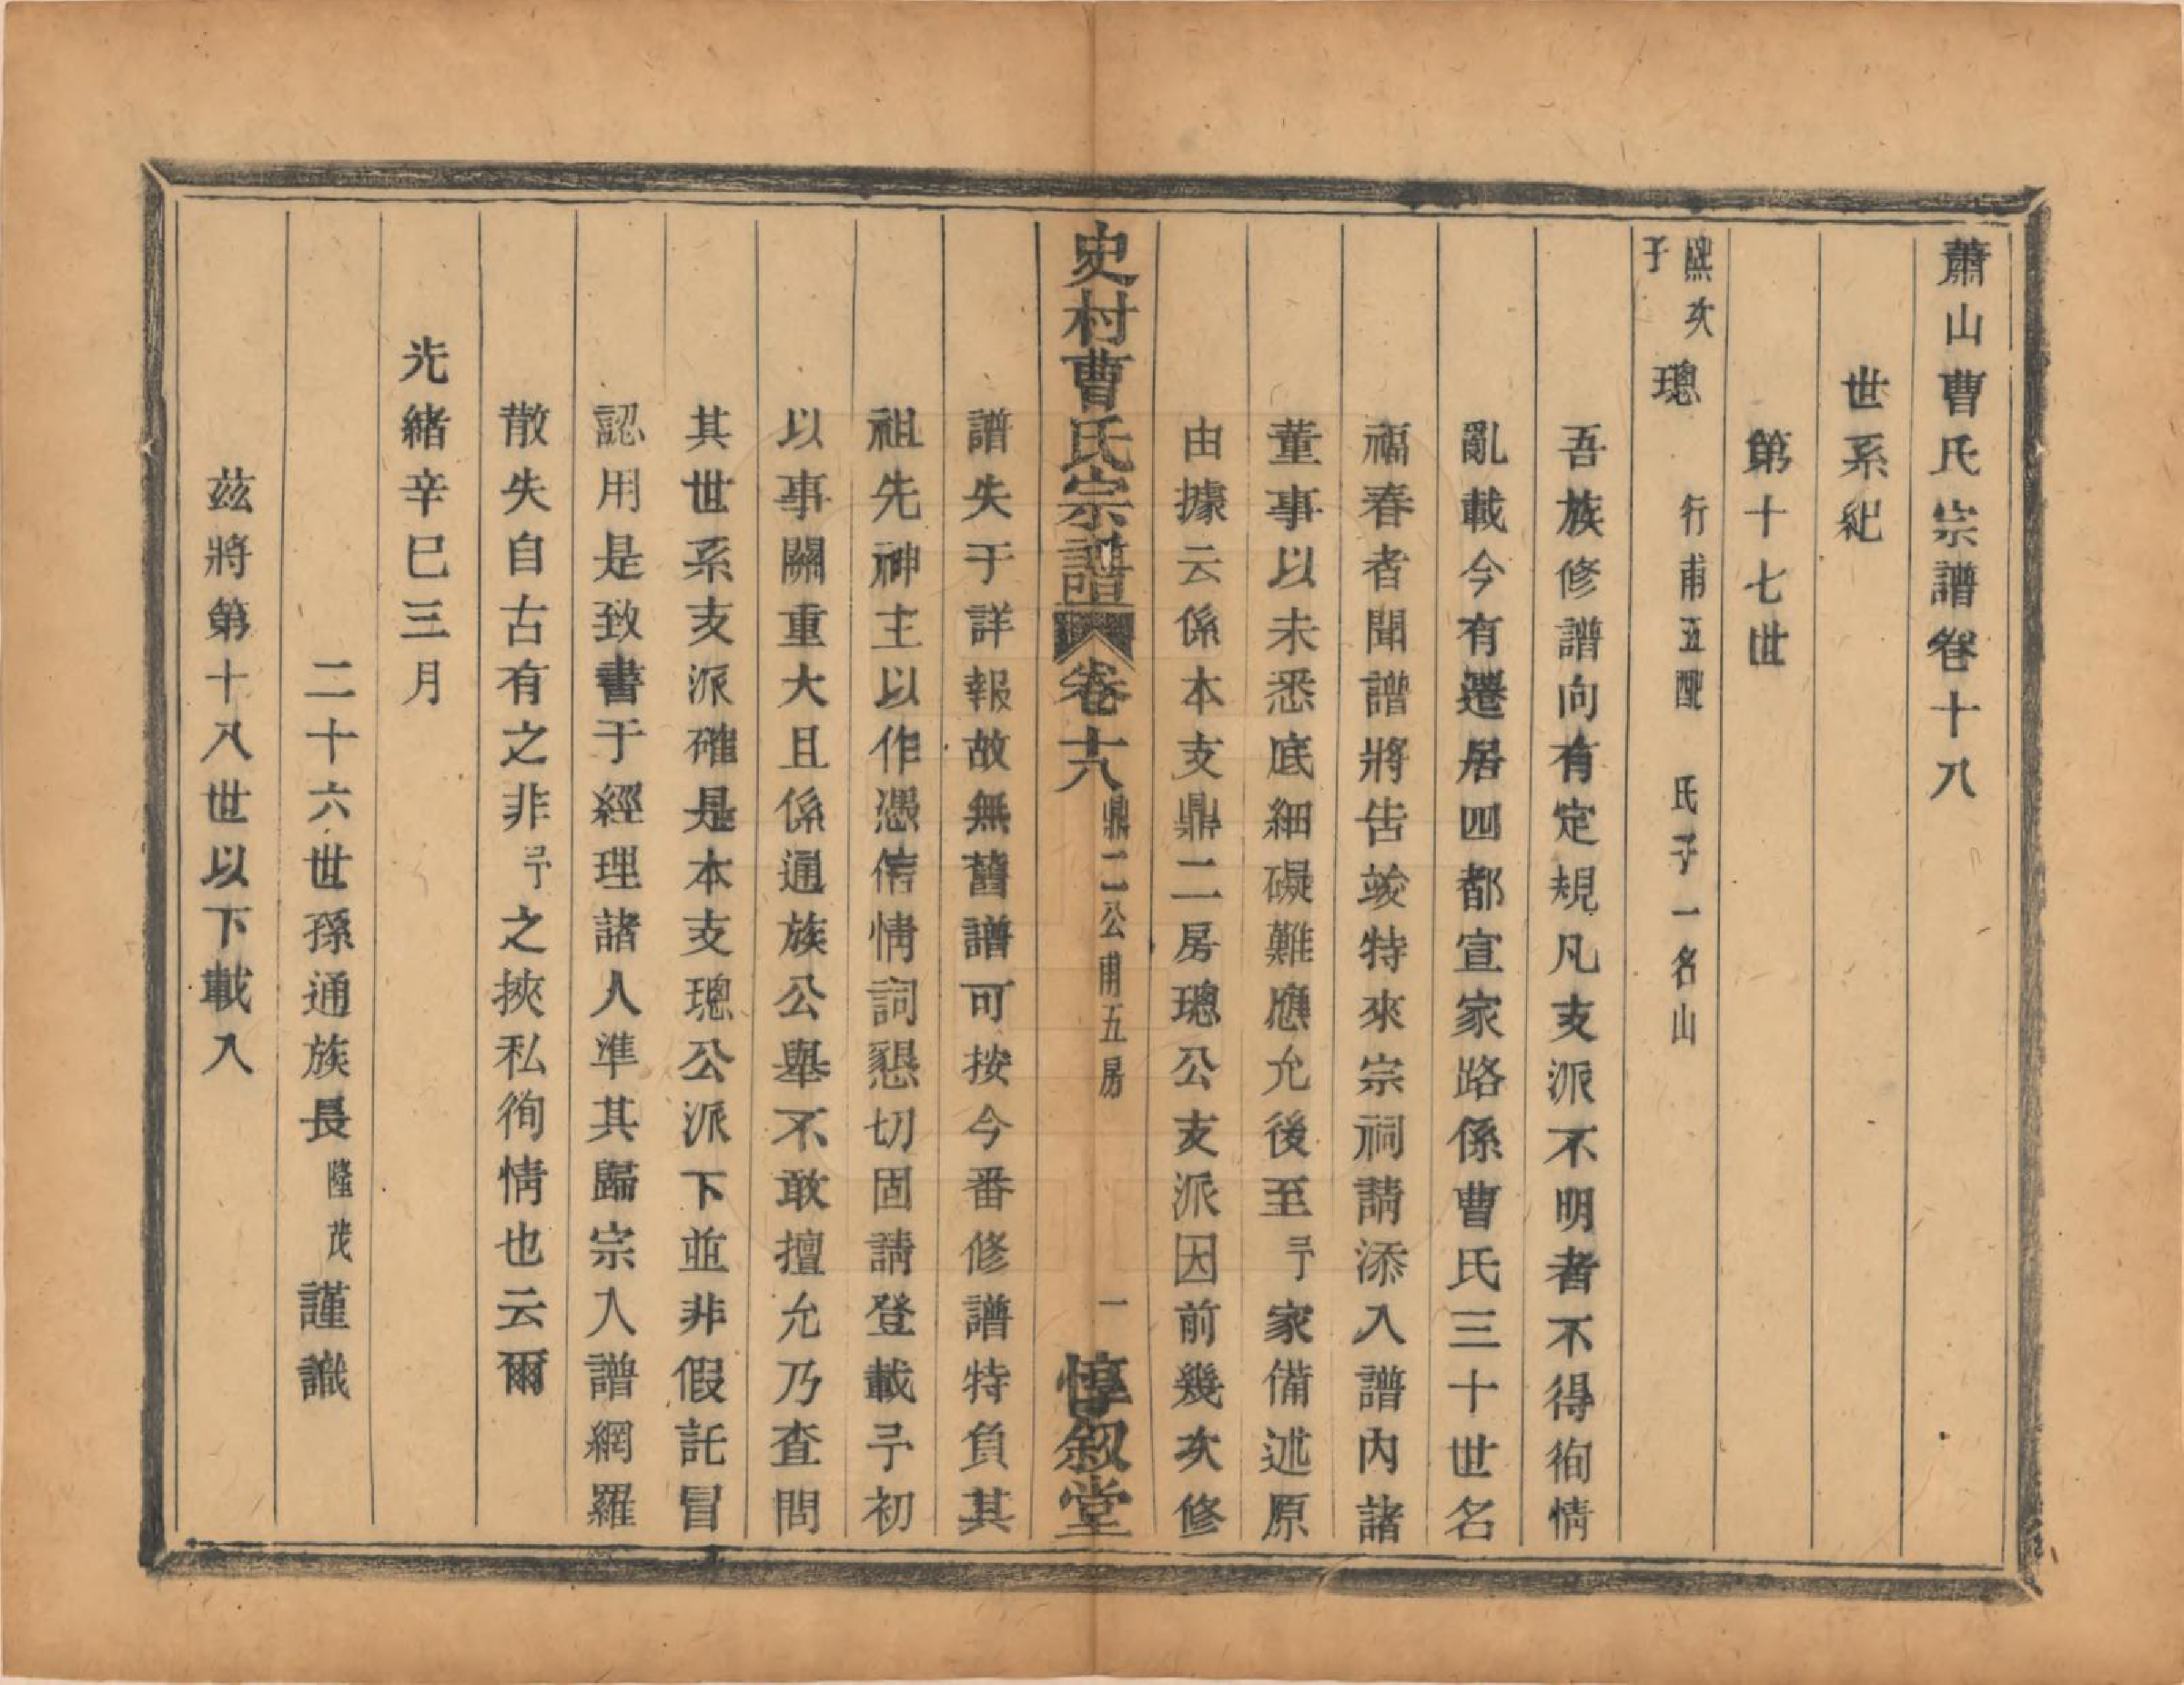 蕭山曹氏宗譜卷十八
世系紀
第十七世
熈次子
璁　行甫五配　氏子一名山
吾族修譜向有定規凡支派不明者不得徇情
亂載今有遷居四都宣家路係曹氏三十世名
福春者聞譜將告竣特來宗祠請添入譜內諸
董事以未悉底細礙難應允後至予家備述原
由據云係本支鼎二房璁公支派因前幾次修
史村曹氏宗譜　卷十八　鼎二公甫五房　一　惇敘堂
譜失于詳報故無舊譜可按今番修譜特負其
祖先神主以作憑信情詞懇切固請登載予初
以事關重大且係通族公舉不敢擅允乃查問
其世系支派確是本支璁公派下並非假託冒
認用是致書于經理諸人準其歸宗入譜網羅
散失自古有之非予之挾私徇情也云爾
光緒辛巳三月
二十六世孫通族長隆茂謹識
茲將第十八世以下載入